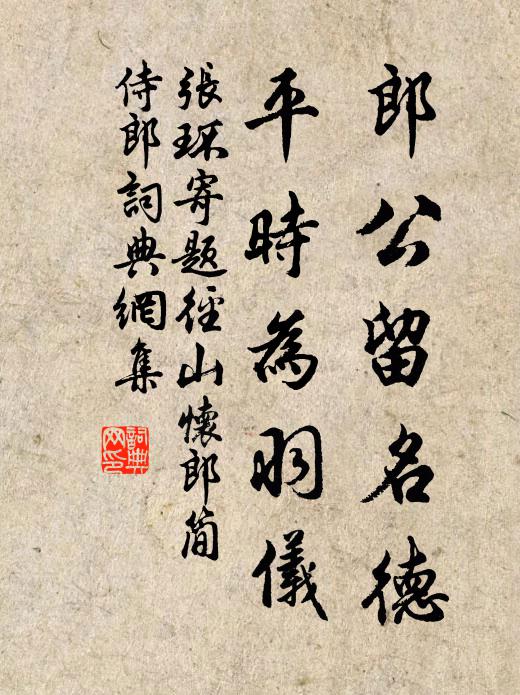 郎公留名德
平時為羽儀
張環寄題徑山懷郎簡
侍郎詞典網集
詞典
网印